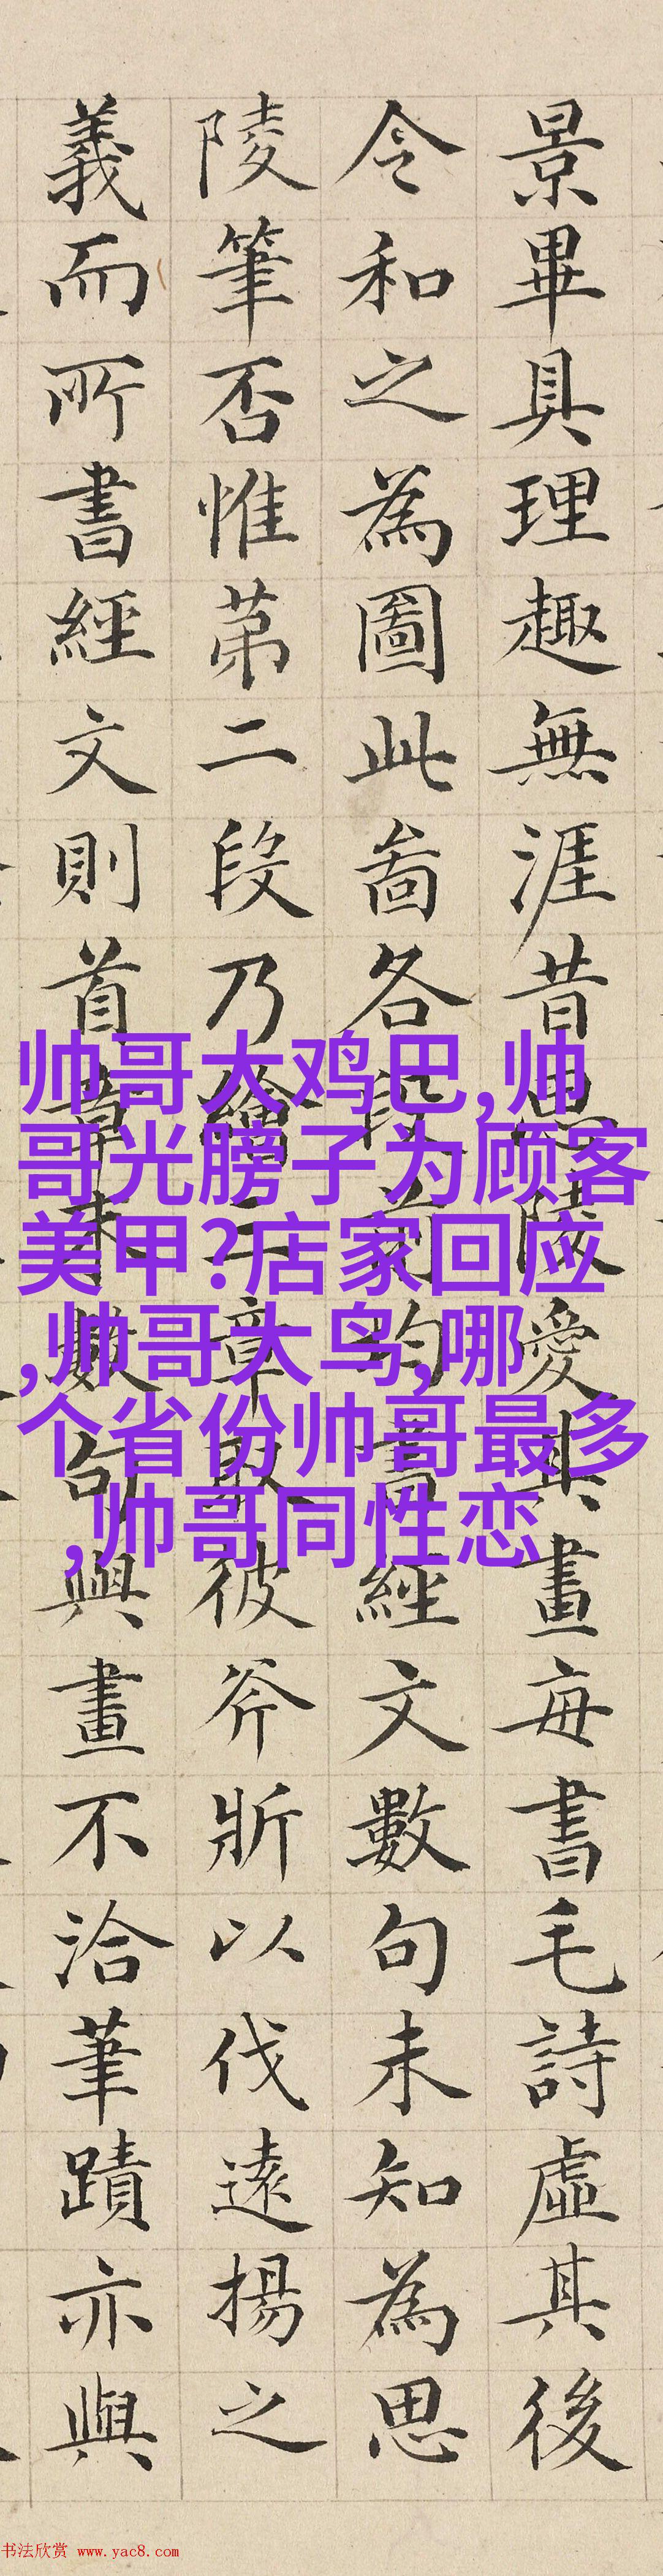 景畢具理趣無涯昔思陵愛其畫每書毛詩虛其後
令和之為圖此啚各段前均書經文數句未知為思
陵筆否惟苐二段乃繪三章取彼斧斨以伐遠揚之
義而所書經文則首章末數句與畫不洽筆蹟亦與
帅哥大鸡巴,帅
哥光膀子为顾客
美甲?店家回应
,帅哥大鸟,哪
个省份帅哥最多
,帅哥同性恋
书法欣赏 www.yac8.com